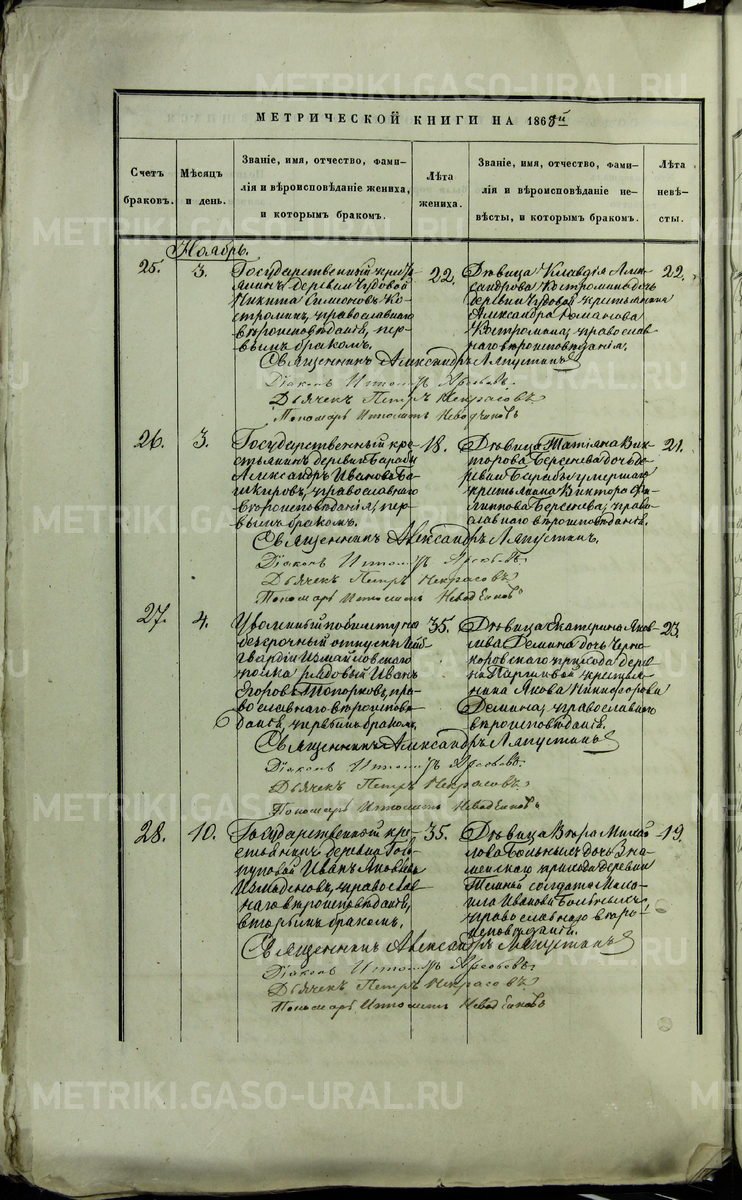 МЕТРИЧЕСКОЙ КНИГИ НА 1868й
Счетъ браковъ.
Мѣсяцъ и день.
Званіе, имя, отчество, фами-
лія и вѣроисповѣданіе жениха,
и которымъ бракомъ.
Лѣта жениха.
Званіе, имя, отчество, фами-
лія и вѣроисповѣданіе не-
вѣсты, и которымъ бракомъ.
Лѣта невѣ-
сты.
Ноябрь.
25.
3.
Государственный крестьянинъ деревни Чудовой
Никита Симеоновъ Ко-
строминъ, православнаго
вѣроисповѣданія, пер-
вымъ бракомъ.
22.
Дѣвица Клавдія Алек-
сандрова Костромина дочь
деревни Чудовой крестьянина
Александра Романова
Костромина, православ-
наго вѣроисповѣданія.
22.
Священникъ Александръ Ляпустинъ
Діаконъ
Дьячекъ Петръ Некрасовъ
Пономарь
26.
3.
Государственный кре-
стьянинъ деревни Барабы
Александръ Ивановъ Ба-
шкировъ, православнаго
вѣроисповѣданія, пер-
вымъ бракомъ.
18.
Дѣвица Татіана Вик-
торова Берсенева дочь де-
ревни Барабы умершаго
крестьянина Виктора Фи-
липпова Берсенева, право-
славнаго вѣроисповѣданія.
21.
Священникъ Александръ Ляпустинъ.
Діаконъ
Дьячекъ Петръ Некрасовъ
Пономарь
27.
4.
Уволенный по билету на
безсрочный отпускъ Лейб
гвардіи Измайловскаго
полка рядовый Иванъ
Егоровъ Топорковъ, пра-
вославнаго вѣроисповѣ-
данія, первымъ бракомъ.
35.
Дѣвица Екатерина Яков-
лева Демина дочь Черно-
коровскаго прихода дерев-
ни крестья-
нина Якова Никифорова
Демина, православнаго
вѣроисповѣданія.
23.
Священникъ Александръ Ляпустинъ
Діаконъ
Дьячекъ Петръ Некрасовъ
Пономарь
28.
10.
Государственной кре-
стьянинъ деревни
Иванъ Яковлевъ
Измоденовъ, православ-
наго вѣроисповѣданія,
вторымъ бракомъ.
35.
Дѣвица Вѣра Михай-
лова Больныхъ дочь Зна-
менскаго прихода деревни
Темной солдата Миха-
ила Иванова Больныхъ,
православнаго вѣро-
исповѣданія.
19.
Священникъ Александръ Ляпустинъ
Діаконъ
Дьячекъ Петръ Некрасовъ
Пономарь
METRIKI.GASO-URAL.RU